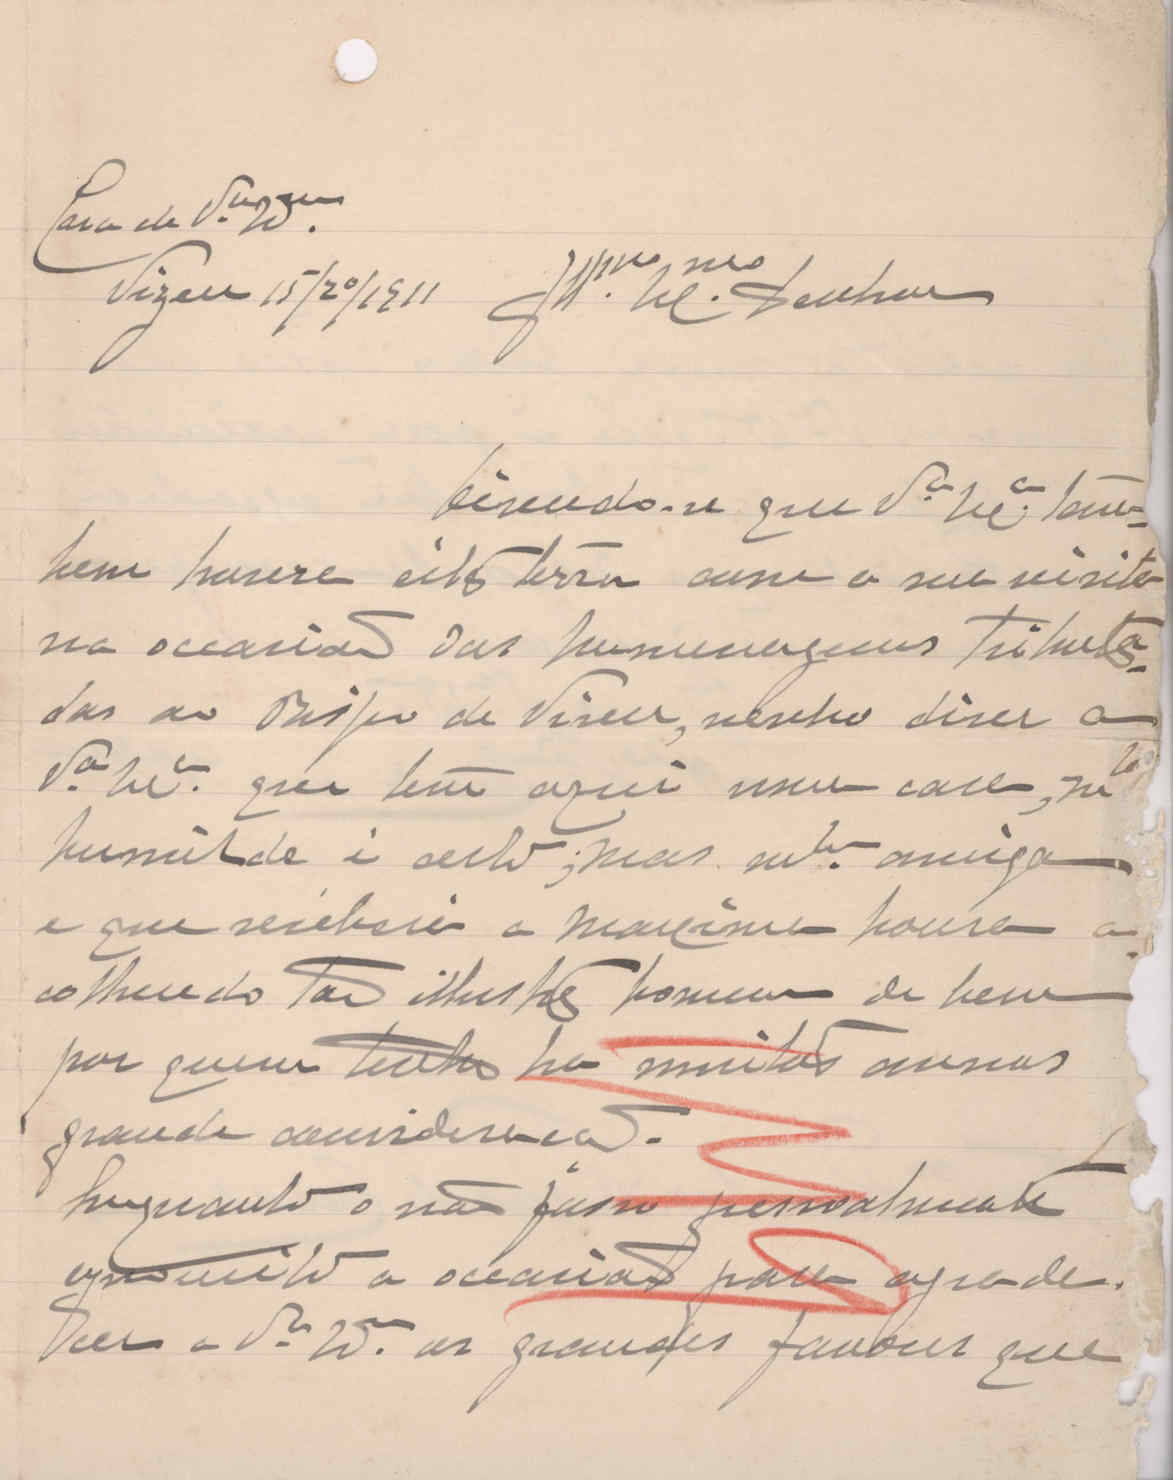 Casa de V.ª Ex.ª
Vizeu 15/20/1911 Ill.mo Ex.mo Senhor
Dizendo-se que V.ª Ex.ª tam-
bem honra esta terra com a sua visita
na occasião das homenagens tributa-
das ao Bispo de Viseu, venho dizer a
V.ª Ex.ª que tem aqui uma casa, m.to
humilde é certo; mas m.to amiga
e que receberá a maxima honra a-
colhendo tão illustre homem de bem
por quem tenho ha muitos annos
grande consideração.
Enquanto o não faço pessoalmente
aproveito a occasião para agrade-
cer a V.ª Ex.ª os grandes favores que